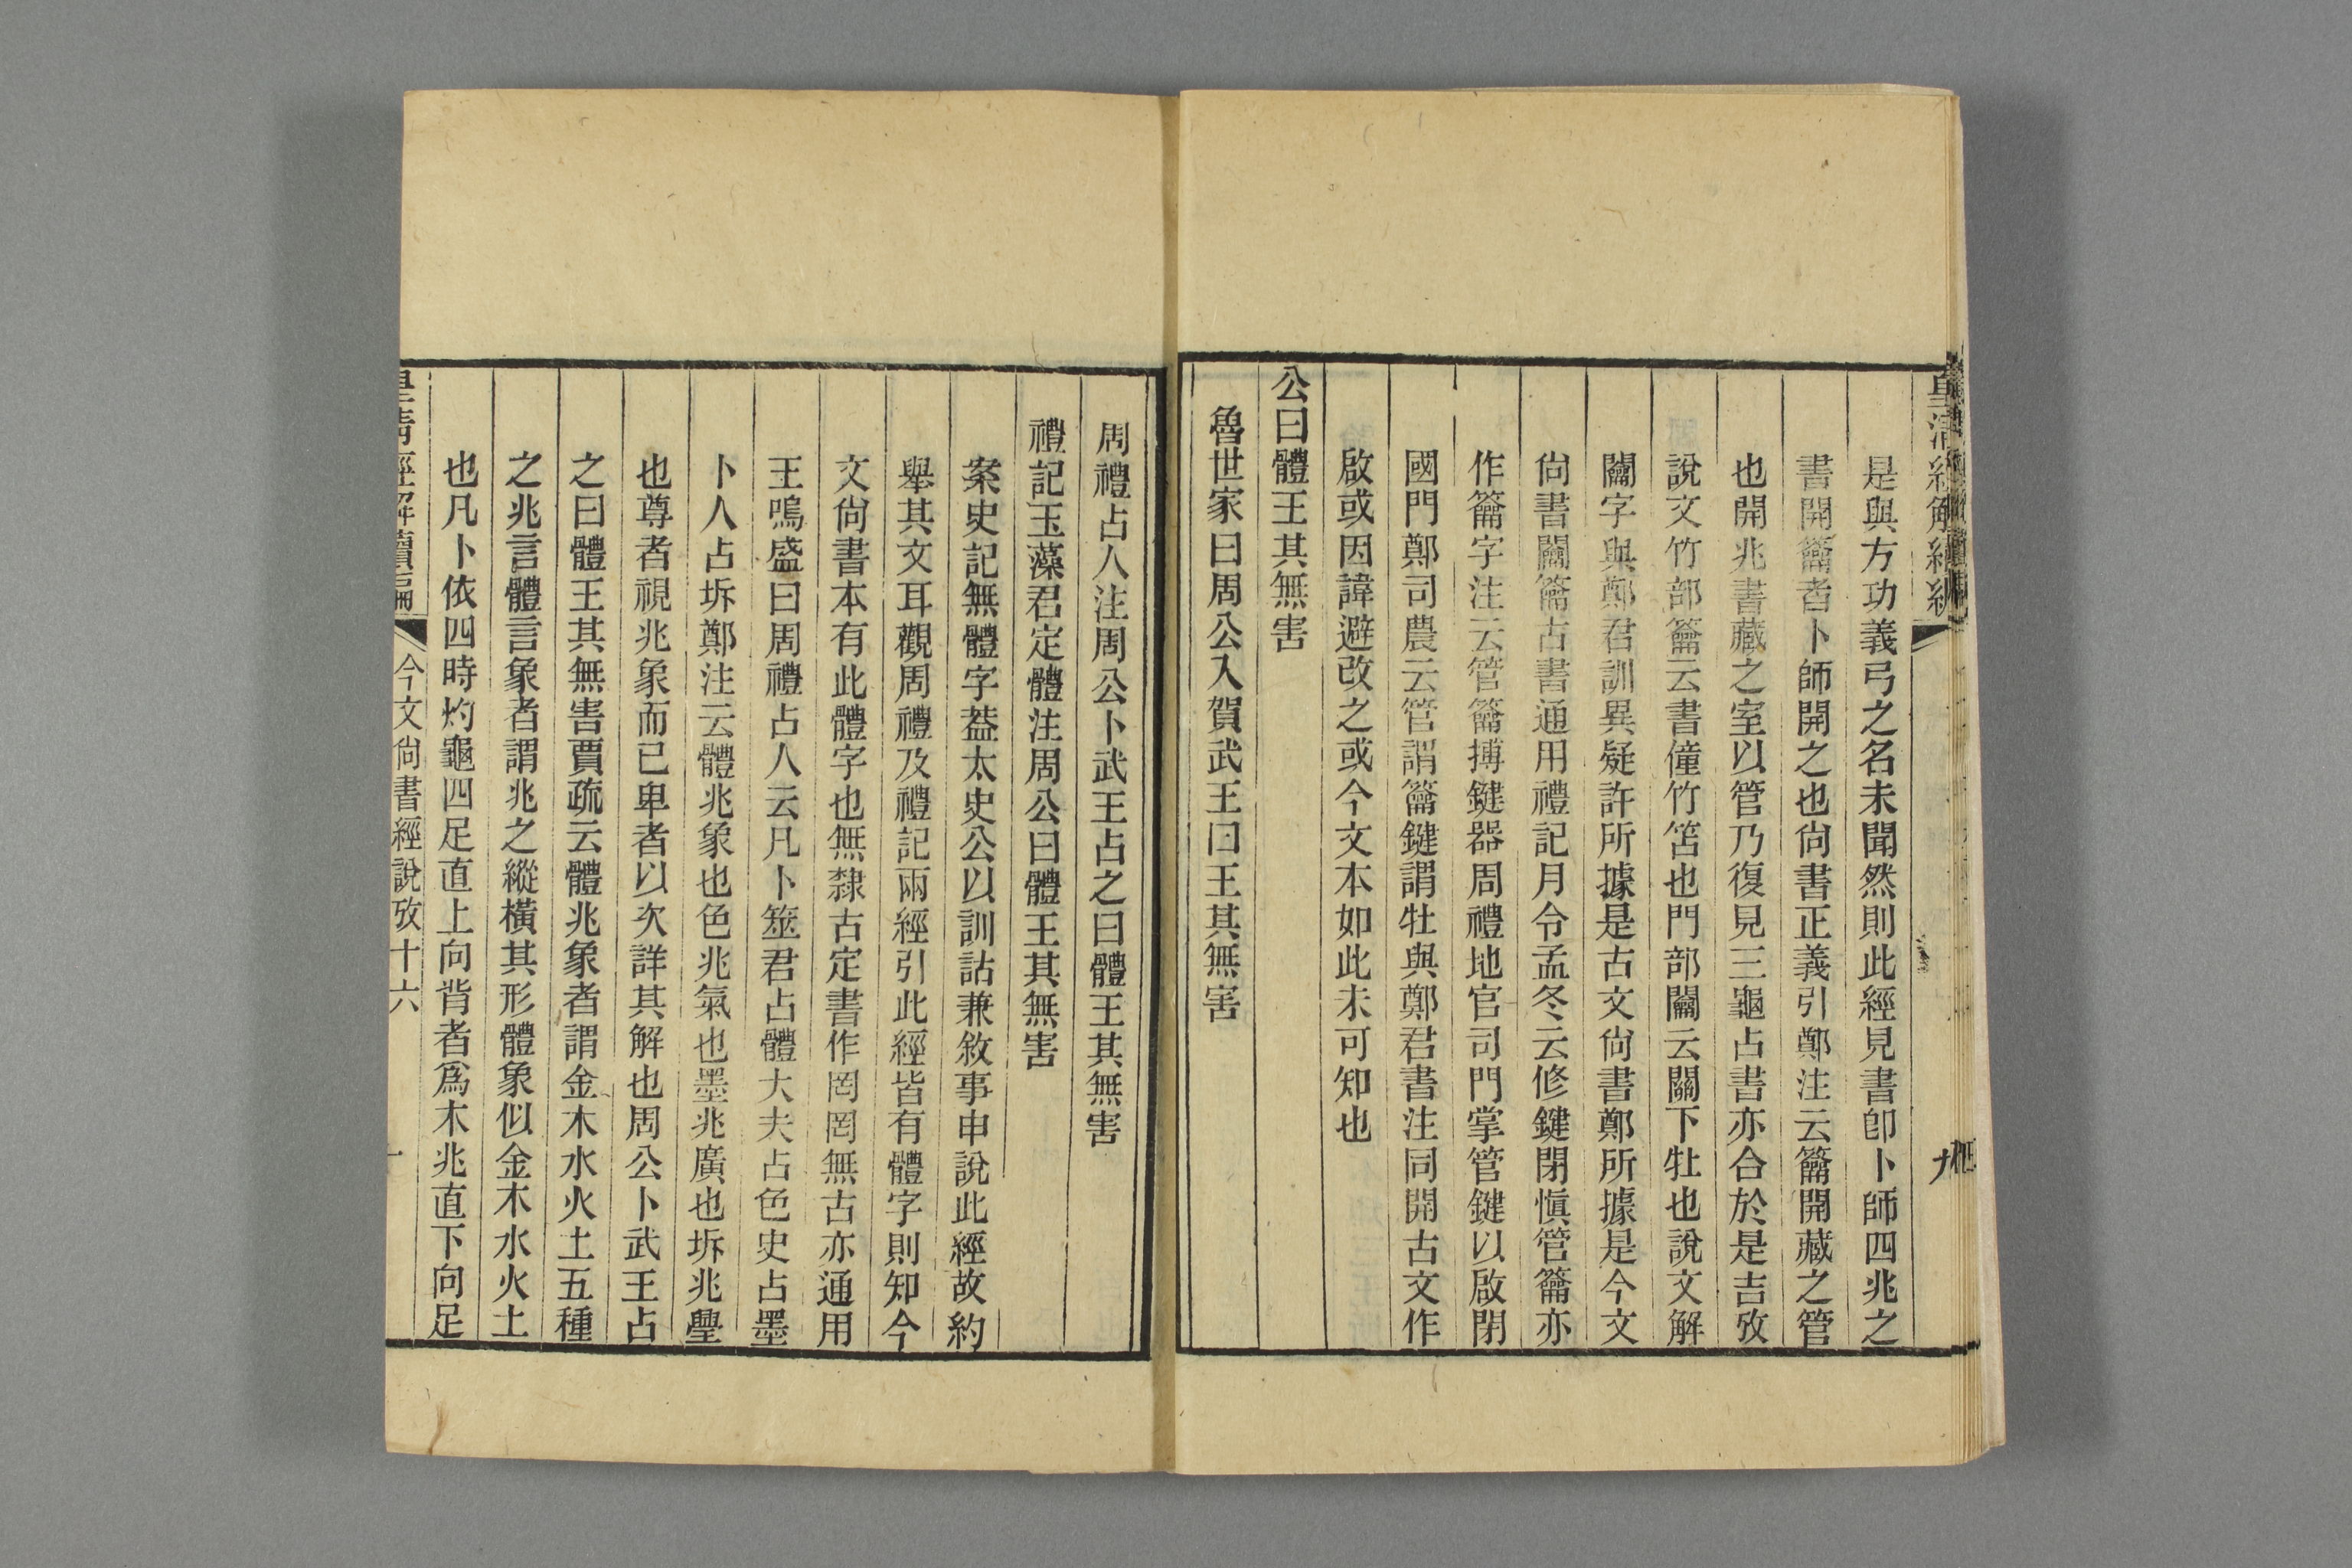 皇清經解續編
九
是與方功義弓之名未聞然則此經見書卽卜師四兆之
書開籥者卜師開之也尙書正義引鄭注云籥開藏之管
也開兆書藏之室以管乃復見三龜占書亦合於是吉攷
說文竹部籥云書僮竹笘也門部闟云關下牡也說文解
闟字與鄭君訓異疑許所據是古文尙書鄭所據是今文
尙書闟籥古書通用禮記月令孟冬云修鍵閉愼管籥亦
作籥字注云管籥搏鍵器周禮地官司門掌管鍵以啟閉
國門鄭司農云管謂籥鍵謂牡與鄭君書注同開古文作
啟或因諱避改之或今文本如此未可知也
公曰體王其無害
魯世家曰周公入賀武王曰王其無害
周禮占人注周公卜武王占之曰體王其無害
禮記玉藻君定體注周公曰體王其無害
案史記無體字葢太史公以訓詁兼敘事申說此經故約
舉其文耳觀周禮及禮記兩經引此經皆有體字則知今
文尙書本有此體字也無隸古定書作罔罔無古亦通用
王鳴盛曰周禮占人云凡卜簭君占體大夫占色史占墨
卜人占坼鄭注云體兆象也色兆氣也墨兆廣也坼兆璺
也尊者視兆象而已卑者以次詳其解也周公卜武王占
之曰體王其無害賈疏云體兆象者謂金木水火土五種
之兆言體言象者謂兆之縱橫其形體象似金木水火土
也凡卜依四時灼龜四足直上向背者爲木兆直下向足
皇清經解續編
今文尙書經說攷十六